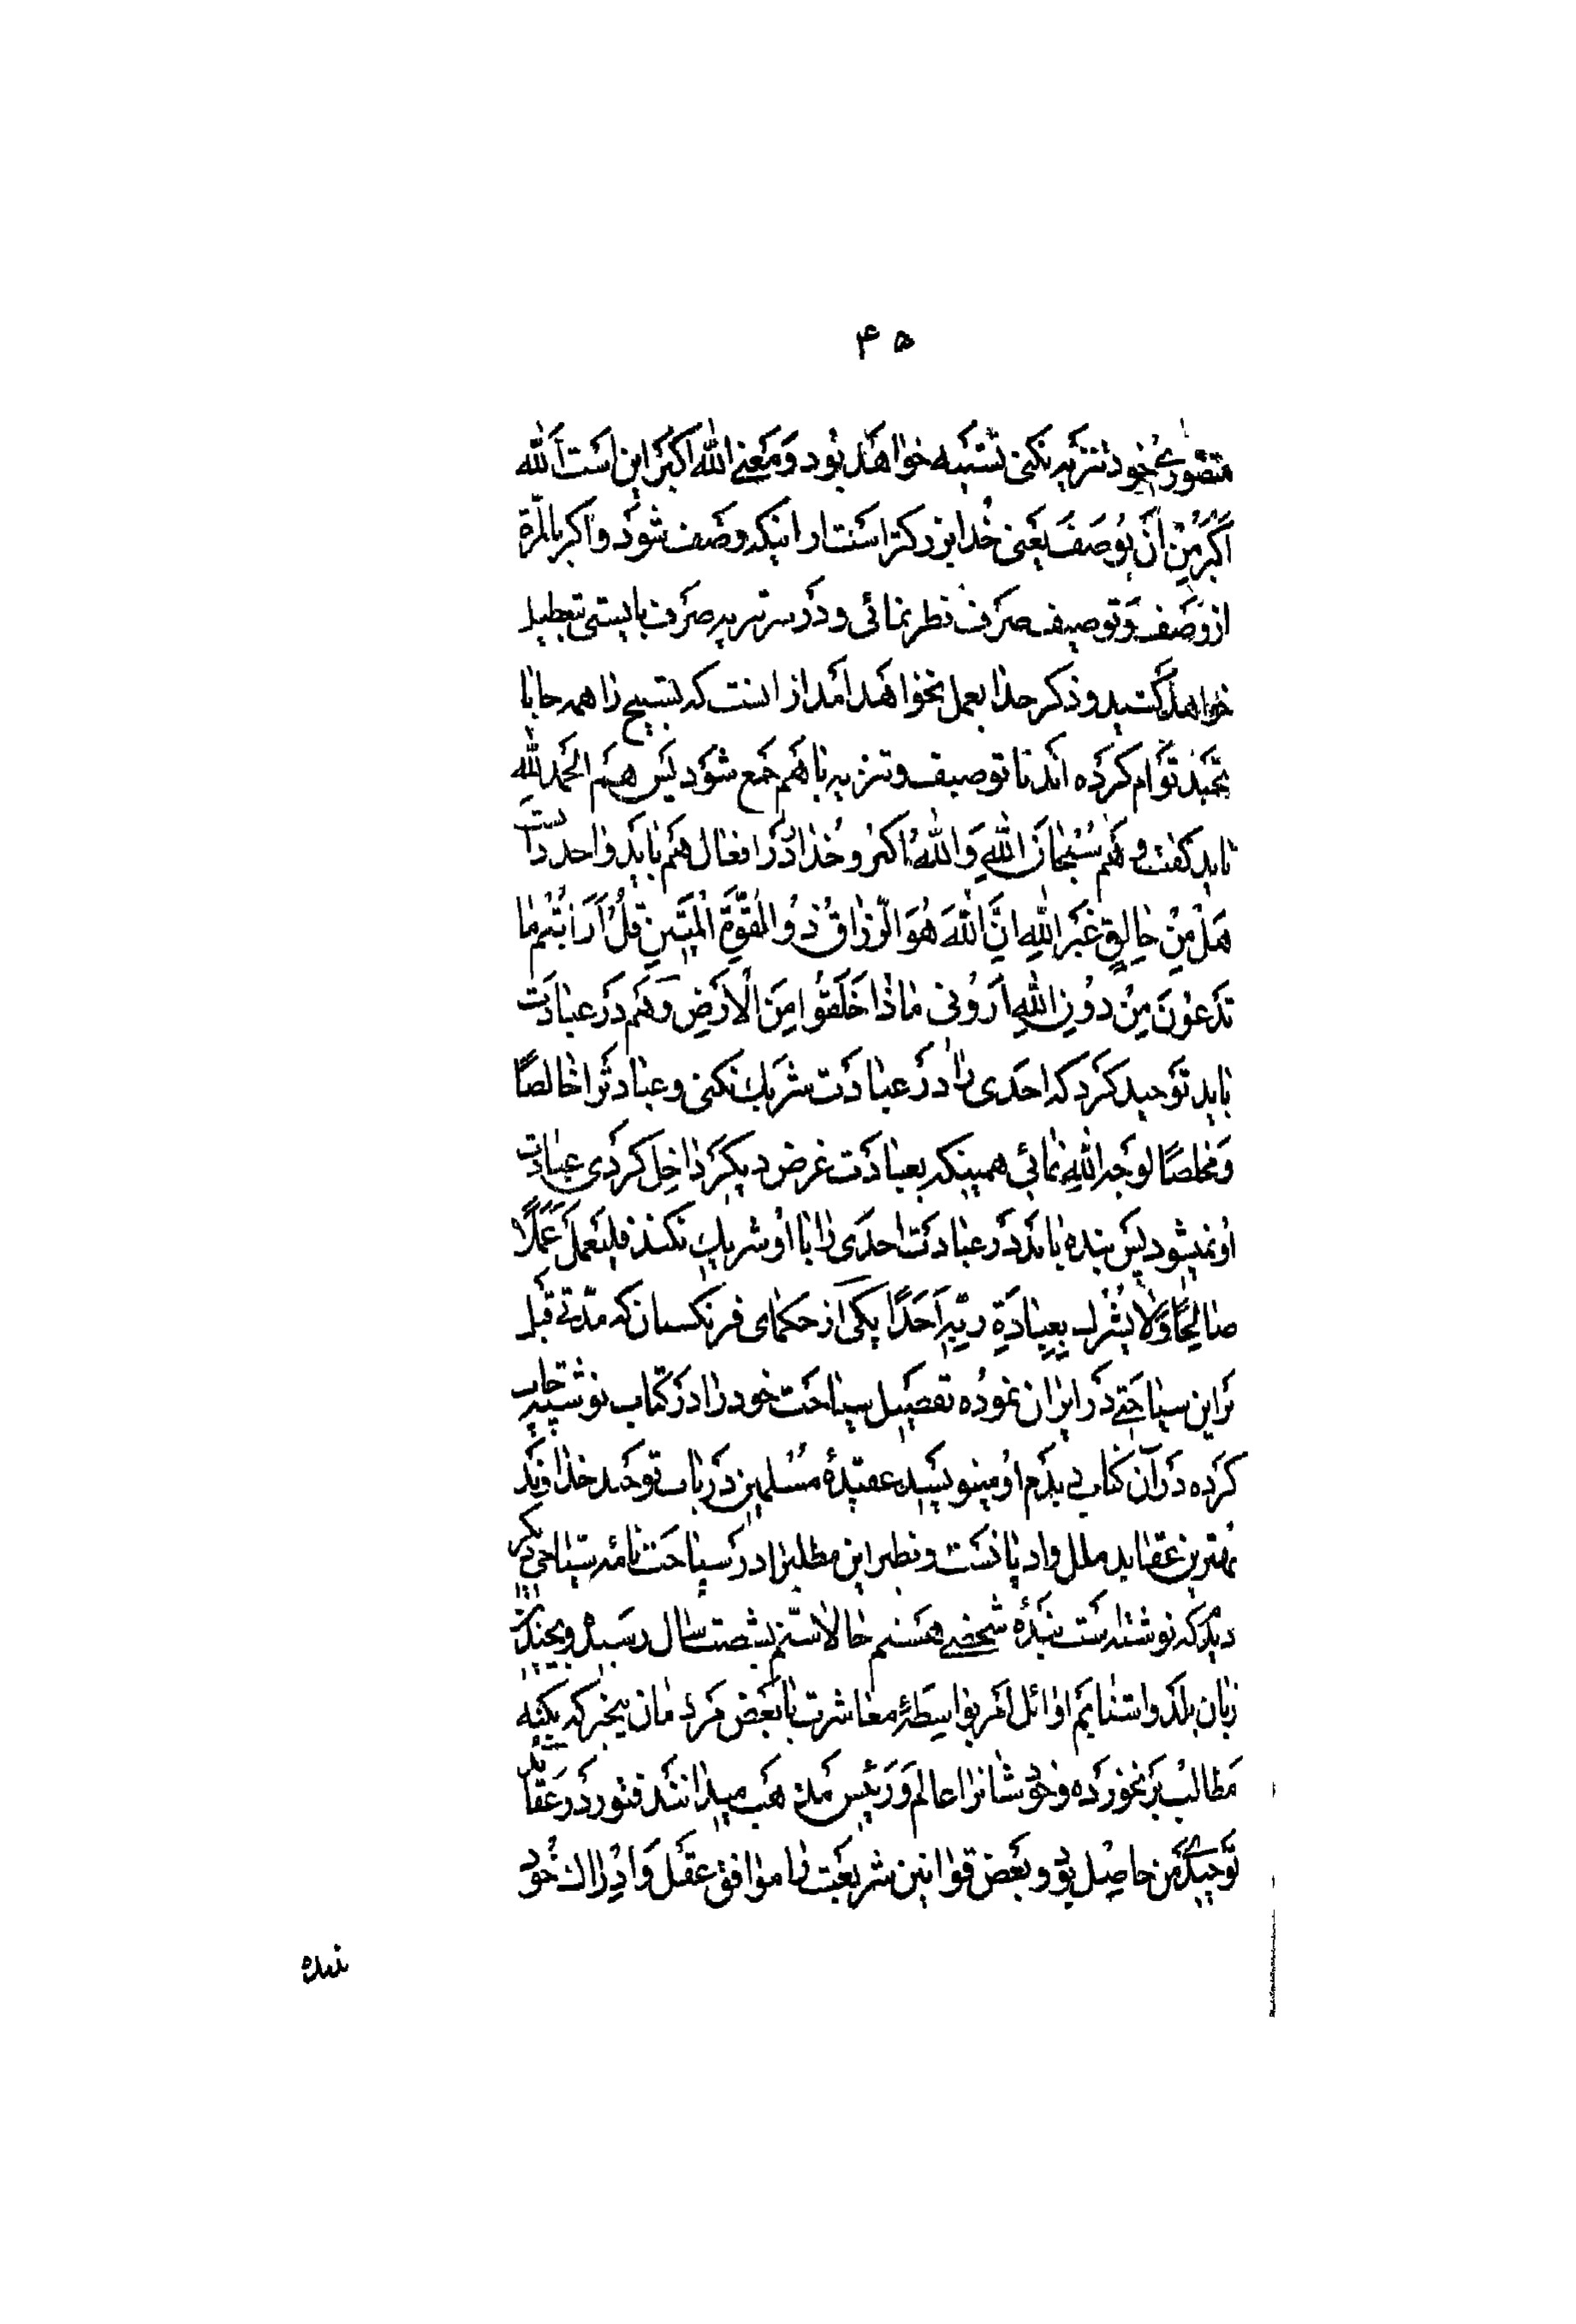 ۴۵
متصوری خود تنزیه نکنی تشبیه خواهد بود و معنی الله اکبر این است الله
اَکبَرُ مِنْ اَنْ یُوصَفَ یعنی خدا بزرکتر است از اینکه وصف شود و اکر بالمرة
از وصف و توصیف صرف نظر نمائی و در تنزیه صرف بایستی تعطیل
خواهد کشید و ذکر خدا بعمل نخواهد آمد از اینست که تسبیح را همه جا با
تحمید توام کرده اند تا توصیف و تنزیه با هم جمع شود پس هم الحمد لله
باید کفت و هم سُبْحانَ اللهِ وَاللهُ اکبر و خدا را در افعال هم باید واحد دانست
هَلْ مِنْ خالِقٍ غَیرُ اللهِ اِنَّ اللهَ هُوَ الرَّزاقُ ذُو الْقُوَّةِ الْمَتینِ قُلْ اَرَاَیْتُمْ ما
تَدْعُونَ مِنْ دُونِ اللهِ اَرُونی ماذا خَلَقُوا مِنَ الْاَرْضِ وهم در عبادت
باید توحید کرد که احدی را در عبادت شریک نکنی و عبادترا خالصًا
و مخلصًا لوجه الله نمائی همینکه بعبادت غرض دیکر داخل کردی عبادت
او نمیشود پس بنده باید در عبادت احدی را با او شریک نکند فلیَعمَل عَمَلًا
صالِحًا وَّلا یُشْرِک بِعِبادَةِ رَبِّهِ اَحَدًا یکی از حکمای فرنکستان که مدتی قبل
بر این سیاحتی در ایران نموده تفصیل سیاحت خود را در کتاب نوشته چاپ
کرده در آن کتاب دیدم او مینویسد عقیدۀ مسلمین در باب توحید خداوند
بهترین عقاید ملل و ادیانست و نظیر این مطلبرا در سیاحت نامه سیاحی دیکر
دیدم که نوشته است بنده شخصی هستم حالا سنم بشصت سال رسیده و بچندین
زبان بلد و اشنایم اوائل امر بواسطۀ معاشرت با بعض مردمان بیخبر که بکنه
مطالب برنخورده و خودشانرا عالم و رئیس مذهب میدانند فتور در عقاید
توحید من حاصل بود و بعض قوانین شریعت را موافق عقل و ادراک خود